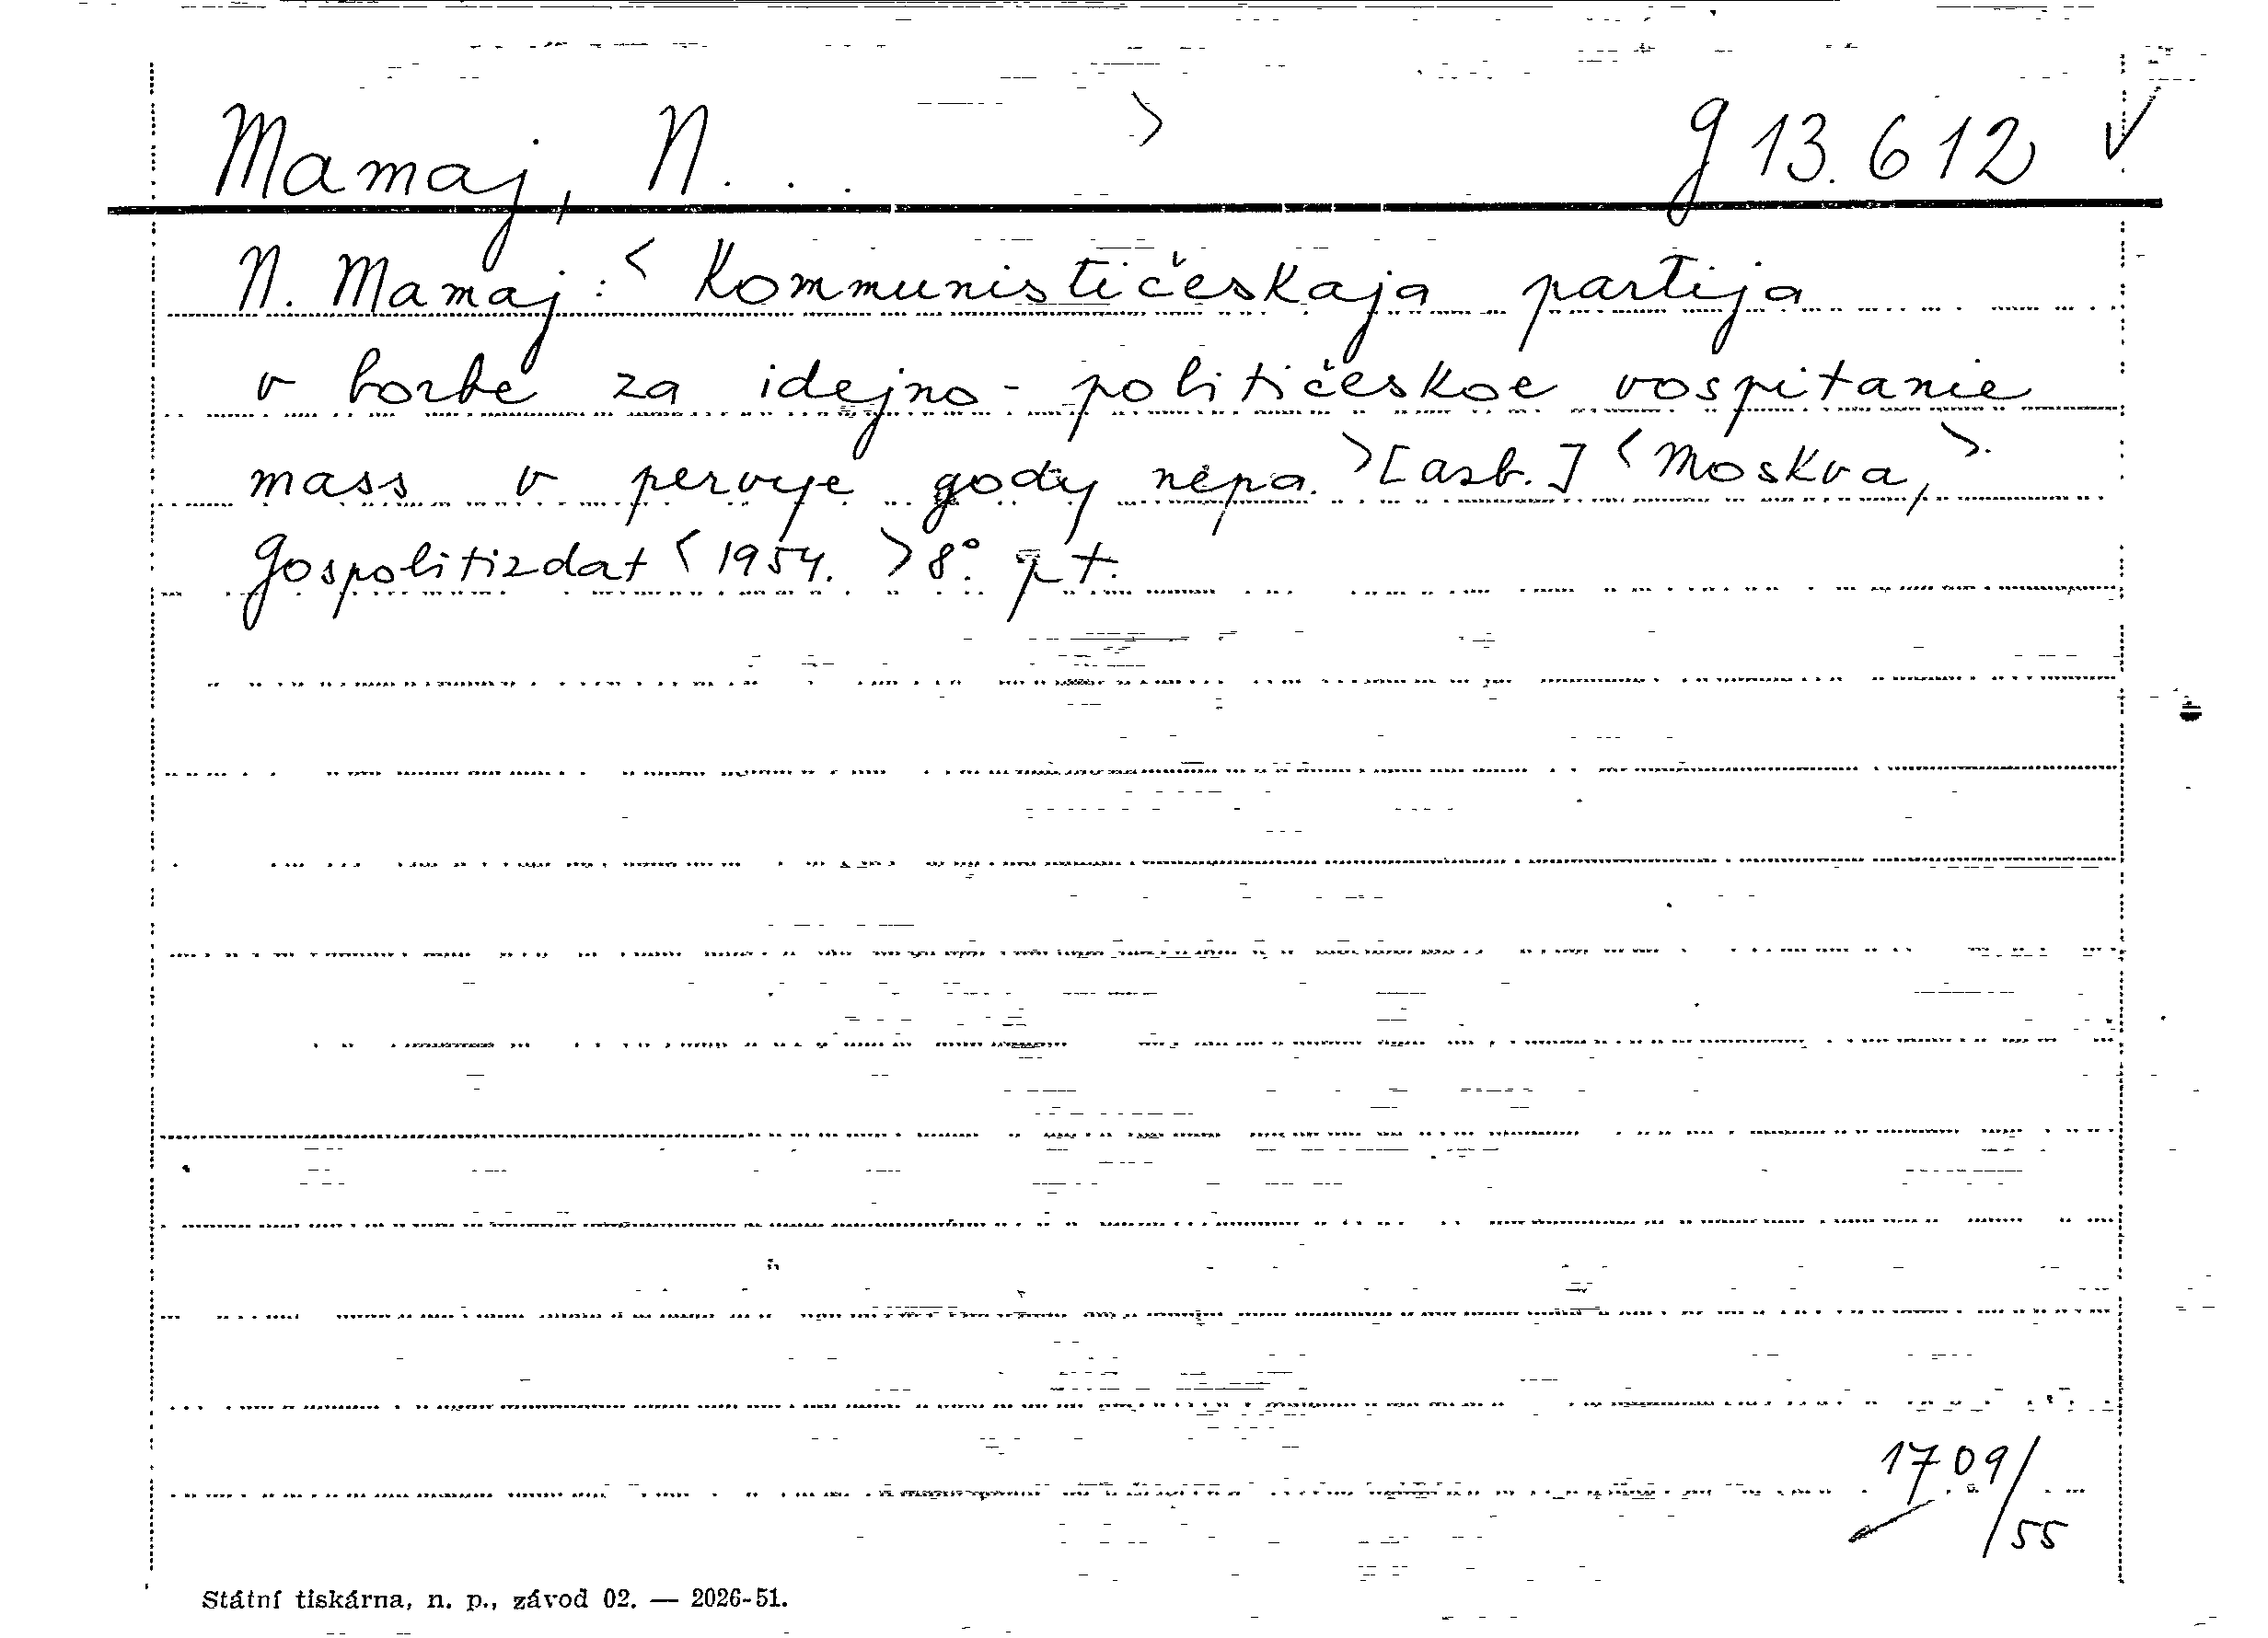 Mamaj, N. . . > g 13.612 ✓
N. Mamaj: < Kommunističeskaja partija
v borbe za idejno-političeskoe vospitanie
mass v pervye gody nepa. > [azb.] < Moskva, >.
Gospolitizdat < 1954. > 8°. p t.
1709/55
Státní tiskárna, n. p., závod 02. — 2026-51.